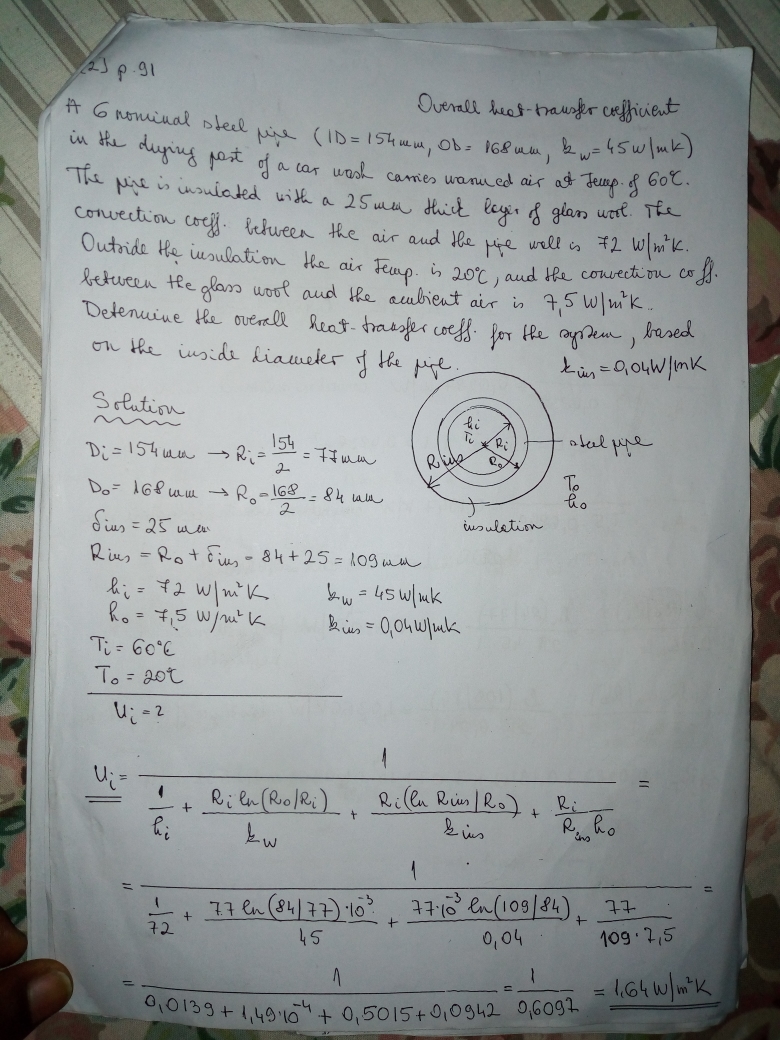 [2] p.91
Overall heat-transfer coefficient
A 6 nominal steel pipe (ID = 154 mm, OD = 168 mm, k_w = 45 W/mK)
in the drying part of a car wash carries warmed air at Temp. of 60°C.
The pipe is insulated with a 25 mm thick layer of glass wool. The
convection coeff. between the air and the pipe wall is 72 W/m²K.
Outside the insulation the air Temp. is 20°C, and the convection coff.
between the glass wool and the ambient air is 7,5 W/m²K.
Determine the overall heat-transfer coeff. for the system, based
on the inside diameter of the pipe. k_ins = 0,04 W/mK
Solution
Di = 154 mm → Ri = 154/2 = 77 mm
Do = 168 mm → Ro = 168/2 = 84 mm
δins = 25 mm
Rins = Ro + δins = 84 + 25 = 109 mm
hi = 72 W/m²K kw = 45 W/mK
ho = 7,5 W/m²K kins = 0,04 W/mK
Ti = 60°C
To = 20°C
Ui = ?
hi
Ti
Ri
Rins
Ro
steel pipe
To
ho
insulation
Ui = 1 / (1/hi + Ri ln(Ro/Ri)/kw + Ri(ln Rins/Ro)/kins + Ri/(Rins ho)) =
= 1 / (1/72 + 77 ln(84/77)·10⁻³/45 + 77·10⁻³ ln(109/84)/0,04 + 77/(109·7,5)) =
= 1 / (0,0139 + 1,49·10⁻⁴ + 0,5015 + 0,0942) = 1/0,6097 = 1,64 W/m²K